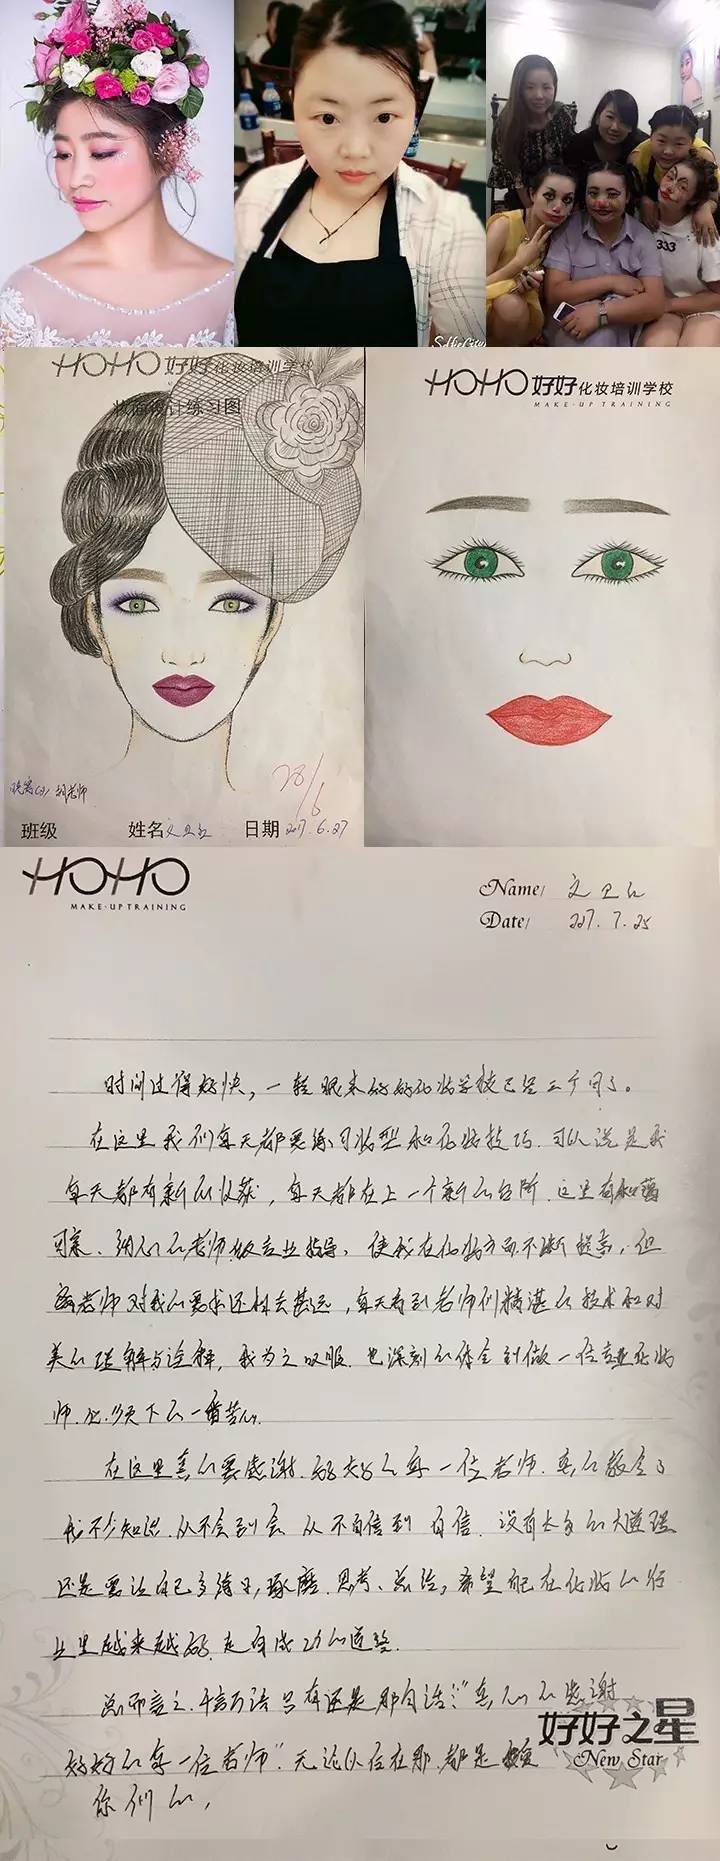 SelfieCity
333
HOHO 好好化妆培训学校
妆面设计练习图
28/6
班级
姓名 文卫红 日期 2017.6.27
HOHO 好好化妆培训学校
MAKE-UP TRAINING
HOHO
MAKE-UP TRAINING
Name/ 文卫红
Date/ 2017.7.25
时间过得好快，一转眼来好好化妆学校已是三个月了。
在这里我们每天都要练习妆型和化妆技巧.可以说是我
每天都有新的收获，每天都在上一个新的台阶.这里有和蔼
可亲、细心的老师做专业指导，使我在化妆方面不断提高，但
离老师对我的要求还相去甚远，每天看到老师们精湛的技术和对
美的理解与诠释，我为之叹服.也深刻的体会到做一位专业化妆
师.必须下的一番苦心.
在这里真的要感谢.好好的每一位老师.真的教会了
我不少知识.从不会到会 从不自信到自信.没有太多的大道理
还是要让自己多练习，琢磨.思考、总结，希望自己在化妆的行
业里越来越好.走向成功的道路.
总而言之.千言万语只有还是那句话：“真心的感谢
好好的每一位老师”.无论以后在哪.都是
你们的，
好好之星
New Star